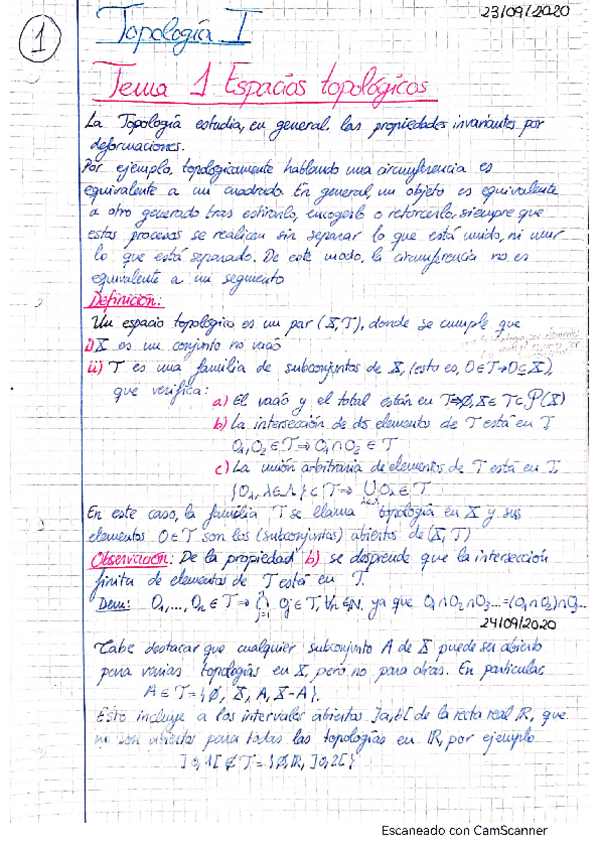 23/09/2020
1
Topología I
Tema 1 Espacios topológicos
La Topología estudia, en general, las propiedades invariantes por
deformaciones.
Por ejemplo, topológicamente hablando una circunferencia es
equivalente a un cuadrado. En general, un objeto es equivalente
a otro generado tras estirarlo, encogerlo o retorcerlo, siempre que
estos procesos se realicen sin separar lo que está unido, ni unir
lo que está separado. De este modo, la circunferencia no es
equivalente a un segmento
Definición:
Un espacio topológico es un par (X,T), donde se cumple que
i) X es un conjunto no vacío
ii) T es una familia de subconjuntos de X, (esto es, O∈T→O⊆X),
que verifica:
a) El vacío y el total están en T⇒∅,X∈T⊂P(X)
b) La intersección de dos elementos de T está en T
O₁,O₂∈T⇒O₁∩O₂∈T
c) La unión arbitraria de elementos de T está en T.
{Oλ, λ∈Λ}⊂T⇒ ∪Oλ∈T
En este caso, la familia T se llama topología en X y sus
elementos O∈T son los (subconjuntos) abiertos de (X,T)
Observación: De la propiedad b) se desprende que la intersección
finita de elementos de T está en T.
Dem: O₁,...,Oₙ∈T⇒ ∩ⁿⱼ₌₁ Oⱼ∈T, ∀n∈N, ya que O₁∩O₂∩O₃...=(O₁∩O₂)∩O₃...
24/09/2020
Cabe destacar que cualquier subconjunto A de X, puede ser abierto
para varias topologías en X, pero no para otras. En particular
A∈T={∅, X, A, X-A}.
Esto incluye a los intervalos abiertos ]a,b[ de la recta real R, que
no son abiertos para todas las topologías en R, por ejemplo
]0,1[∉T={∅,R, ]0,2[}
Escaneado con CamScanner